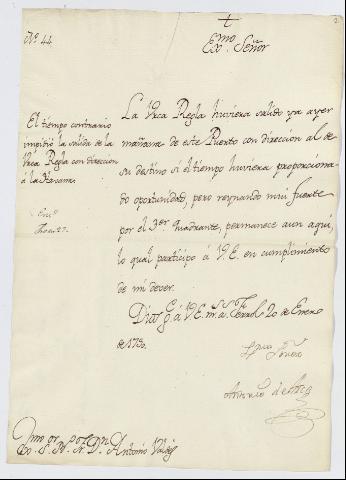 Nº 44
Exmo Señor
El tiempo contrario
impidió la salida de la
Urca Regla con direccion
á la Havana.
La Urca Regla huviera salido ya ayer
mañana de este Puerto con direccion al de
su destino si el tiempo huviera proporciona-
do oportunidad, pero reynando mui fuerte
por el 3er quadrante, permanece aun aqui,
lo qual participo á V.E. en cumplimiento
de mi dever.
Dios gue á V.E. ms as Ferrol 20 de Enero
de 1790.
Exmo Señor
Antonio de
Exmo Sor Bo Fr Dn Antonio Valdés